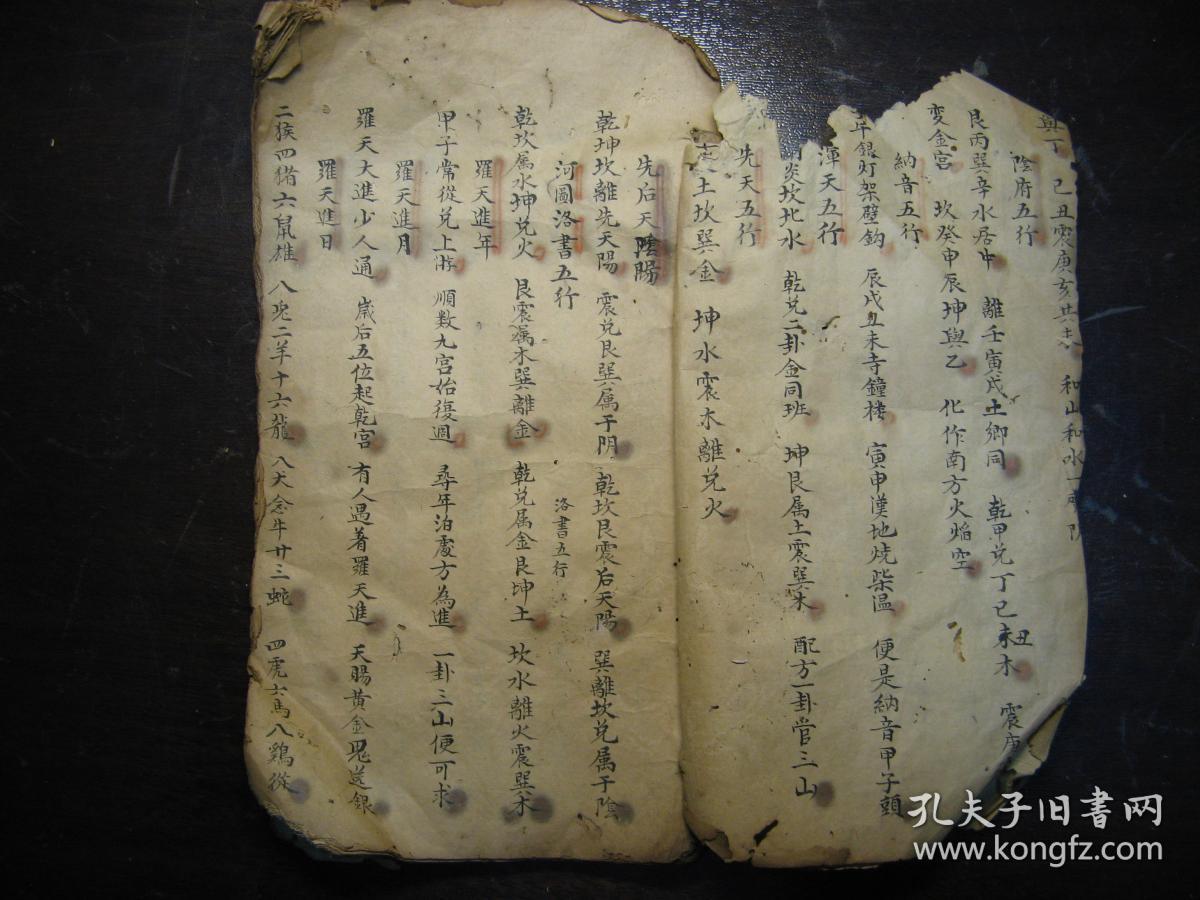 丁己丑震庚亥 和山和水一
陰府五行
艮丙巽辛水居中 離壬寅戌土鄉同 乾甲兌丁己丑未木 震庚
變金宮 坎癸申辰坤與乙 化作南方火焰空
納音五行
年銀灯架壁鈎 辰戌丑未寺鐘楼 寅申漢地燒柴温 便是納音甲子頭
渾天五行
炎坎北水 乾兌二卦金同班 坤艮属土震巽木 配方一卦管三山
先天五行
土坎巽金 坤水震木離兌火
先后天陰陽
乾坤坎離先天陽 震兌艮巽属于阴 乾坎艮震后天陽 巽離坎兌属于陰
河圖洛書五行 洛書五行
乾坎属水坤兌火 艮震属木巽離金 乾兌属金艮坤土 坎水離火震巽木
羅天進年
甲子常從兌上游 順数九宮始復週 尋年泊處方為進 一卦三山便可求
羅天進月
羅天大進少人通 歲后五位起乾宮 有人遇著羅天進 天賜黃金鬼送銀
羅天進日
二猴四猪六鼠雄 八兇二羊十六龍 八犬念牛廿三蛇 四虎六馬八鷄從
孔夫子旧書网
www.kongfz.com